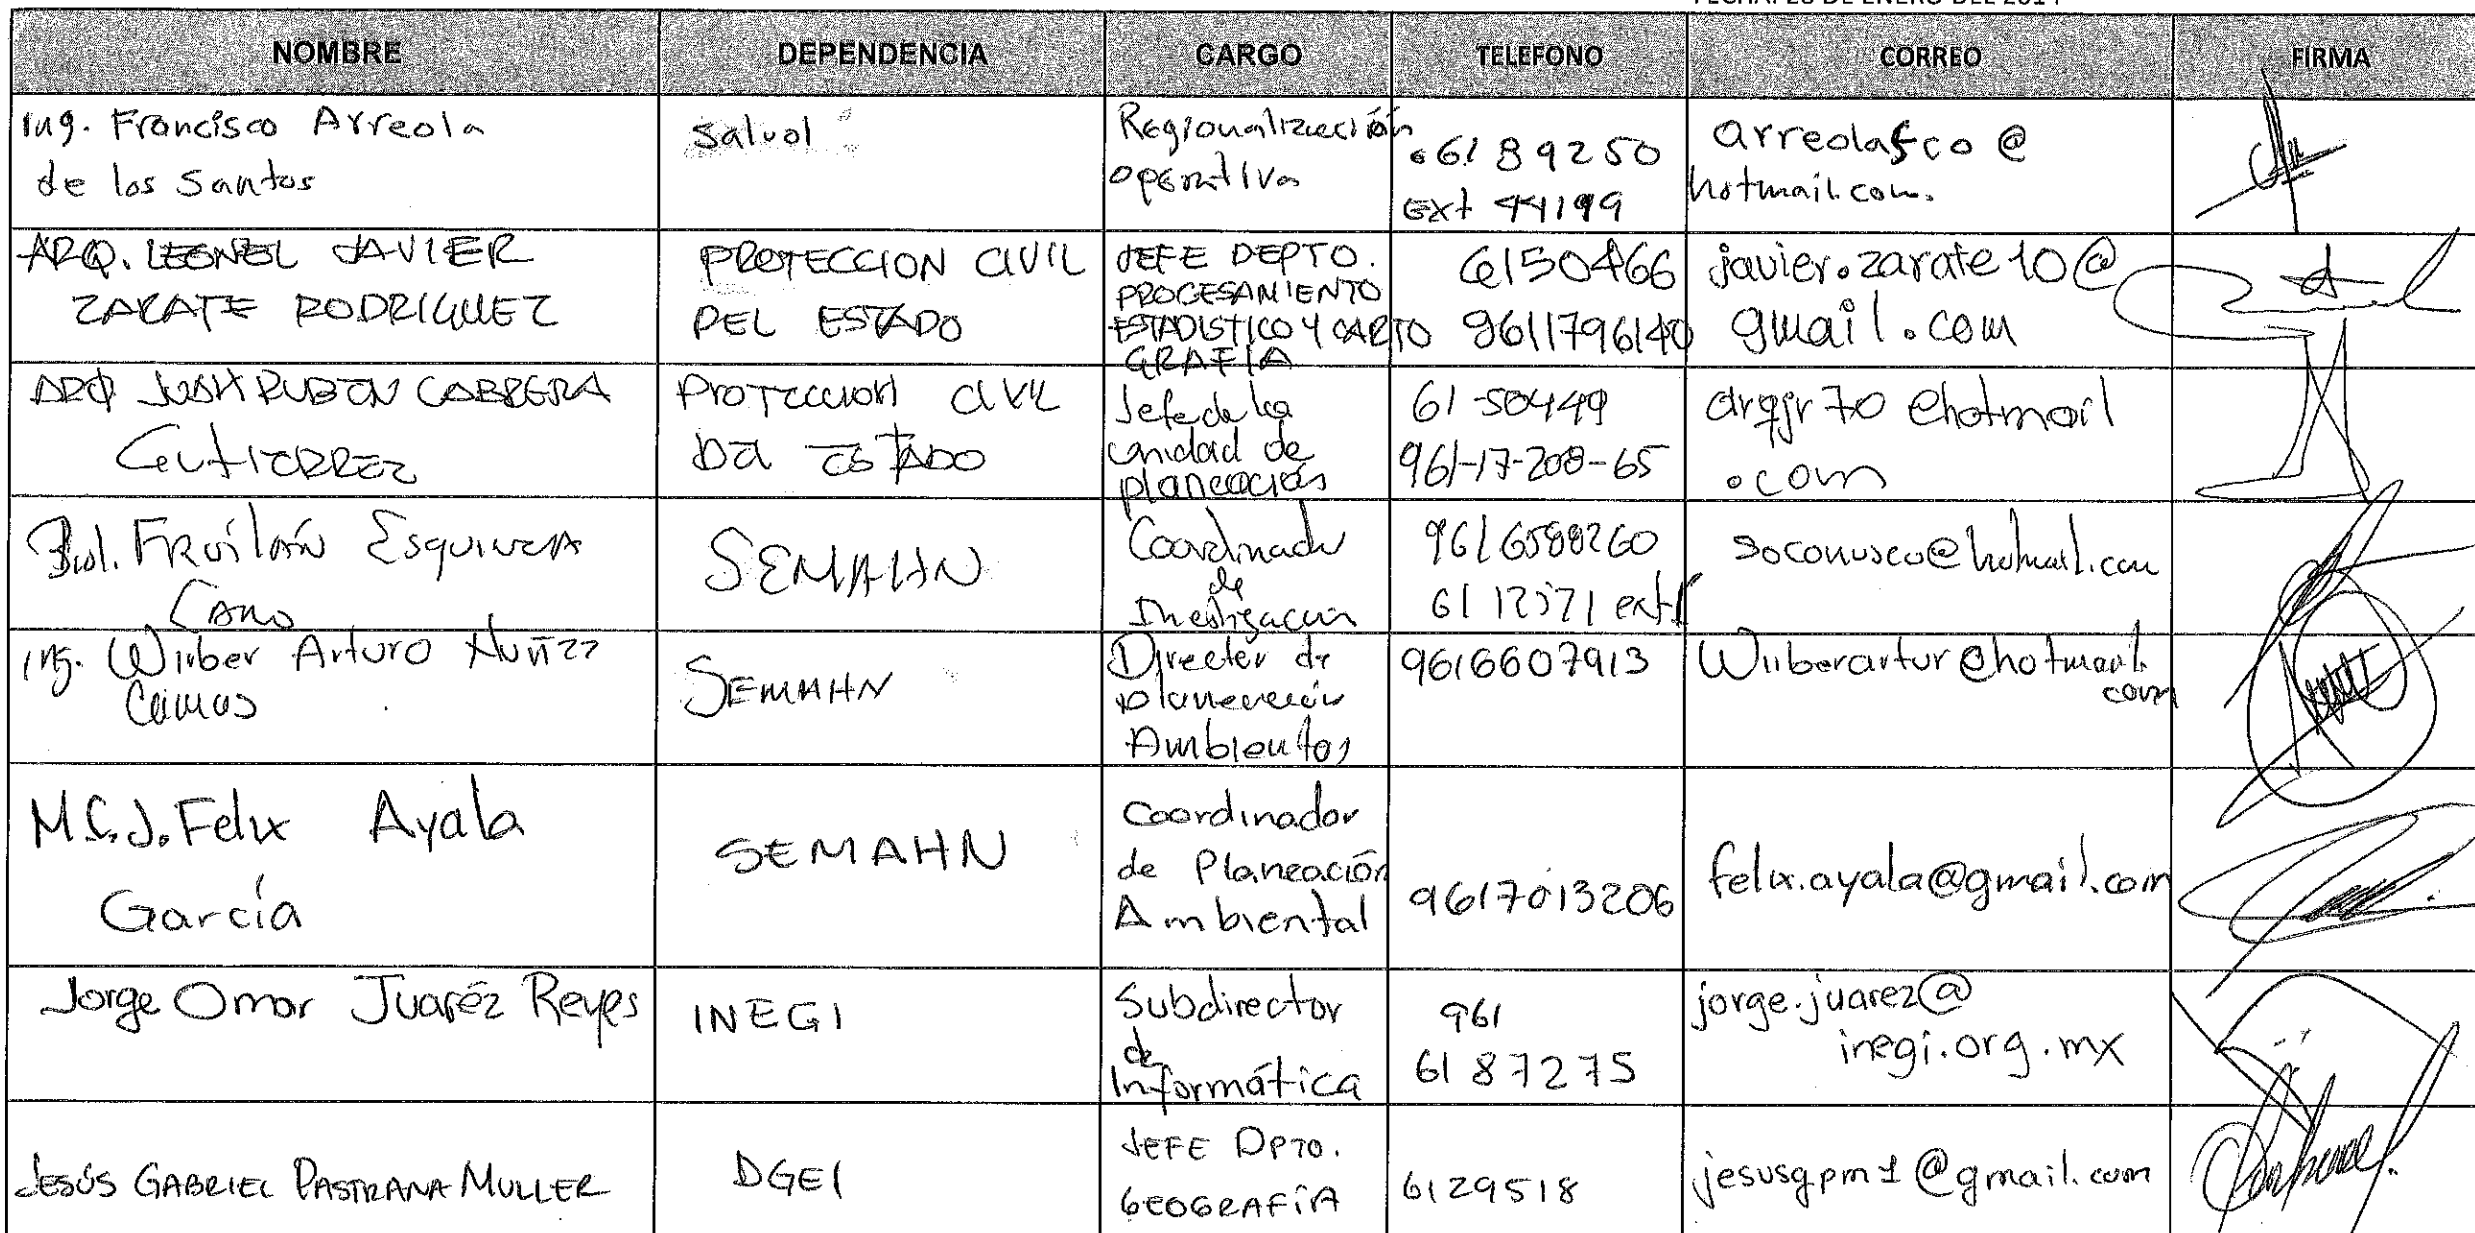 FECHA: 28 DE ENERO DEL 2014
NOMBRE DEPENDENCIA CARGO TELEFONO CORREO FIRMA
Ing. Francisco Arreola
de los Santos
Salud
Regionalización
operativa
6189250
Ext 44199
arreolafco@
hotmail.com.
ARQ. LEONEL JAVIER
ZARATE RODRIGUEZ
PROTECCION CIVIL
DEL ESTADO
JEFE DEPTO.
PROCESAMIENTO
ESTADISTICO Y CARTO
GRAFIA
6150466
9611796140
javier.zarate10@
gmail.com
ARQ JUAN RUBEN CABRERA
GUTIERREZ
PROTECCION CIVIL
DEL ESTADO
Jefe de la
unidad de
planeación
61-50449
961-17-208-65
arqjr70@hotmail
.com
Biol. FROILÁN ESQUINCA
CANO
SEMAHN
Coordinador
de
Investigación
9616588260
ext
soconusco@hotmail.com
Ing. Wilber Arturo Nuñez
Camas
SEMAHN
Director de
planeación
Ambiental
9616607913
Wilberartur@hotmail.
com
M.C.J. Felix Ayala
García
SEMAHN
Coordinador
de Planeación
Ambiental
9617013206
felix.ayala@gmail.com
Jorge Omar Juaréz Reyes
INEGI
Subdirector
de
Informática
961
6187275
jorge.juarez@
inegi.org.mx
JESÚS GABRIEL PASTRANA MULLER
DGEI
JEFE DPTO.
GEOGRAFÍA
6129518
jesusgpm1@gmail.com